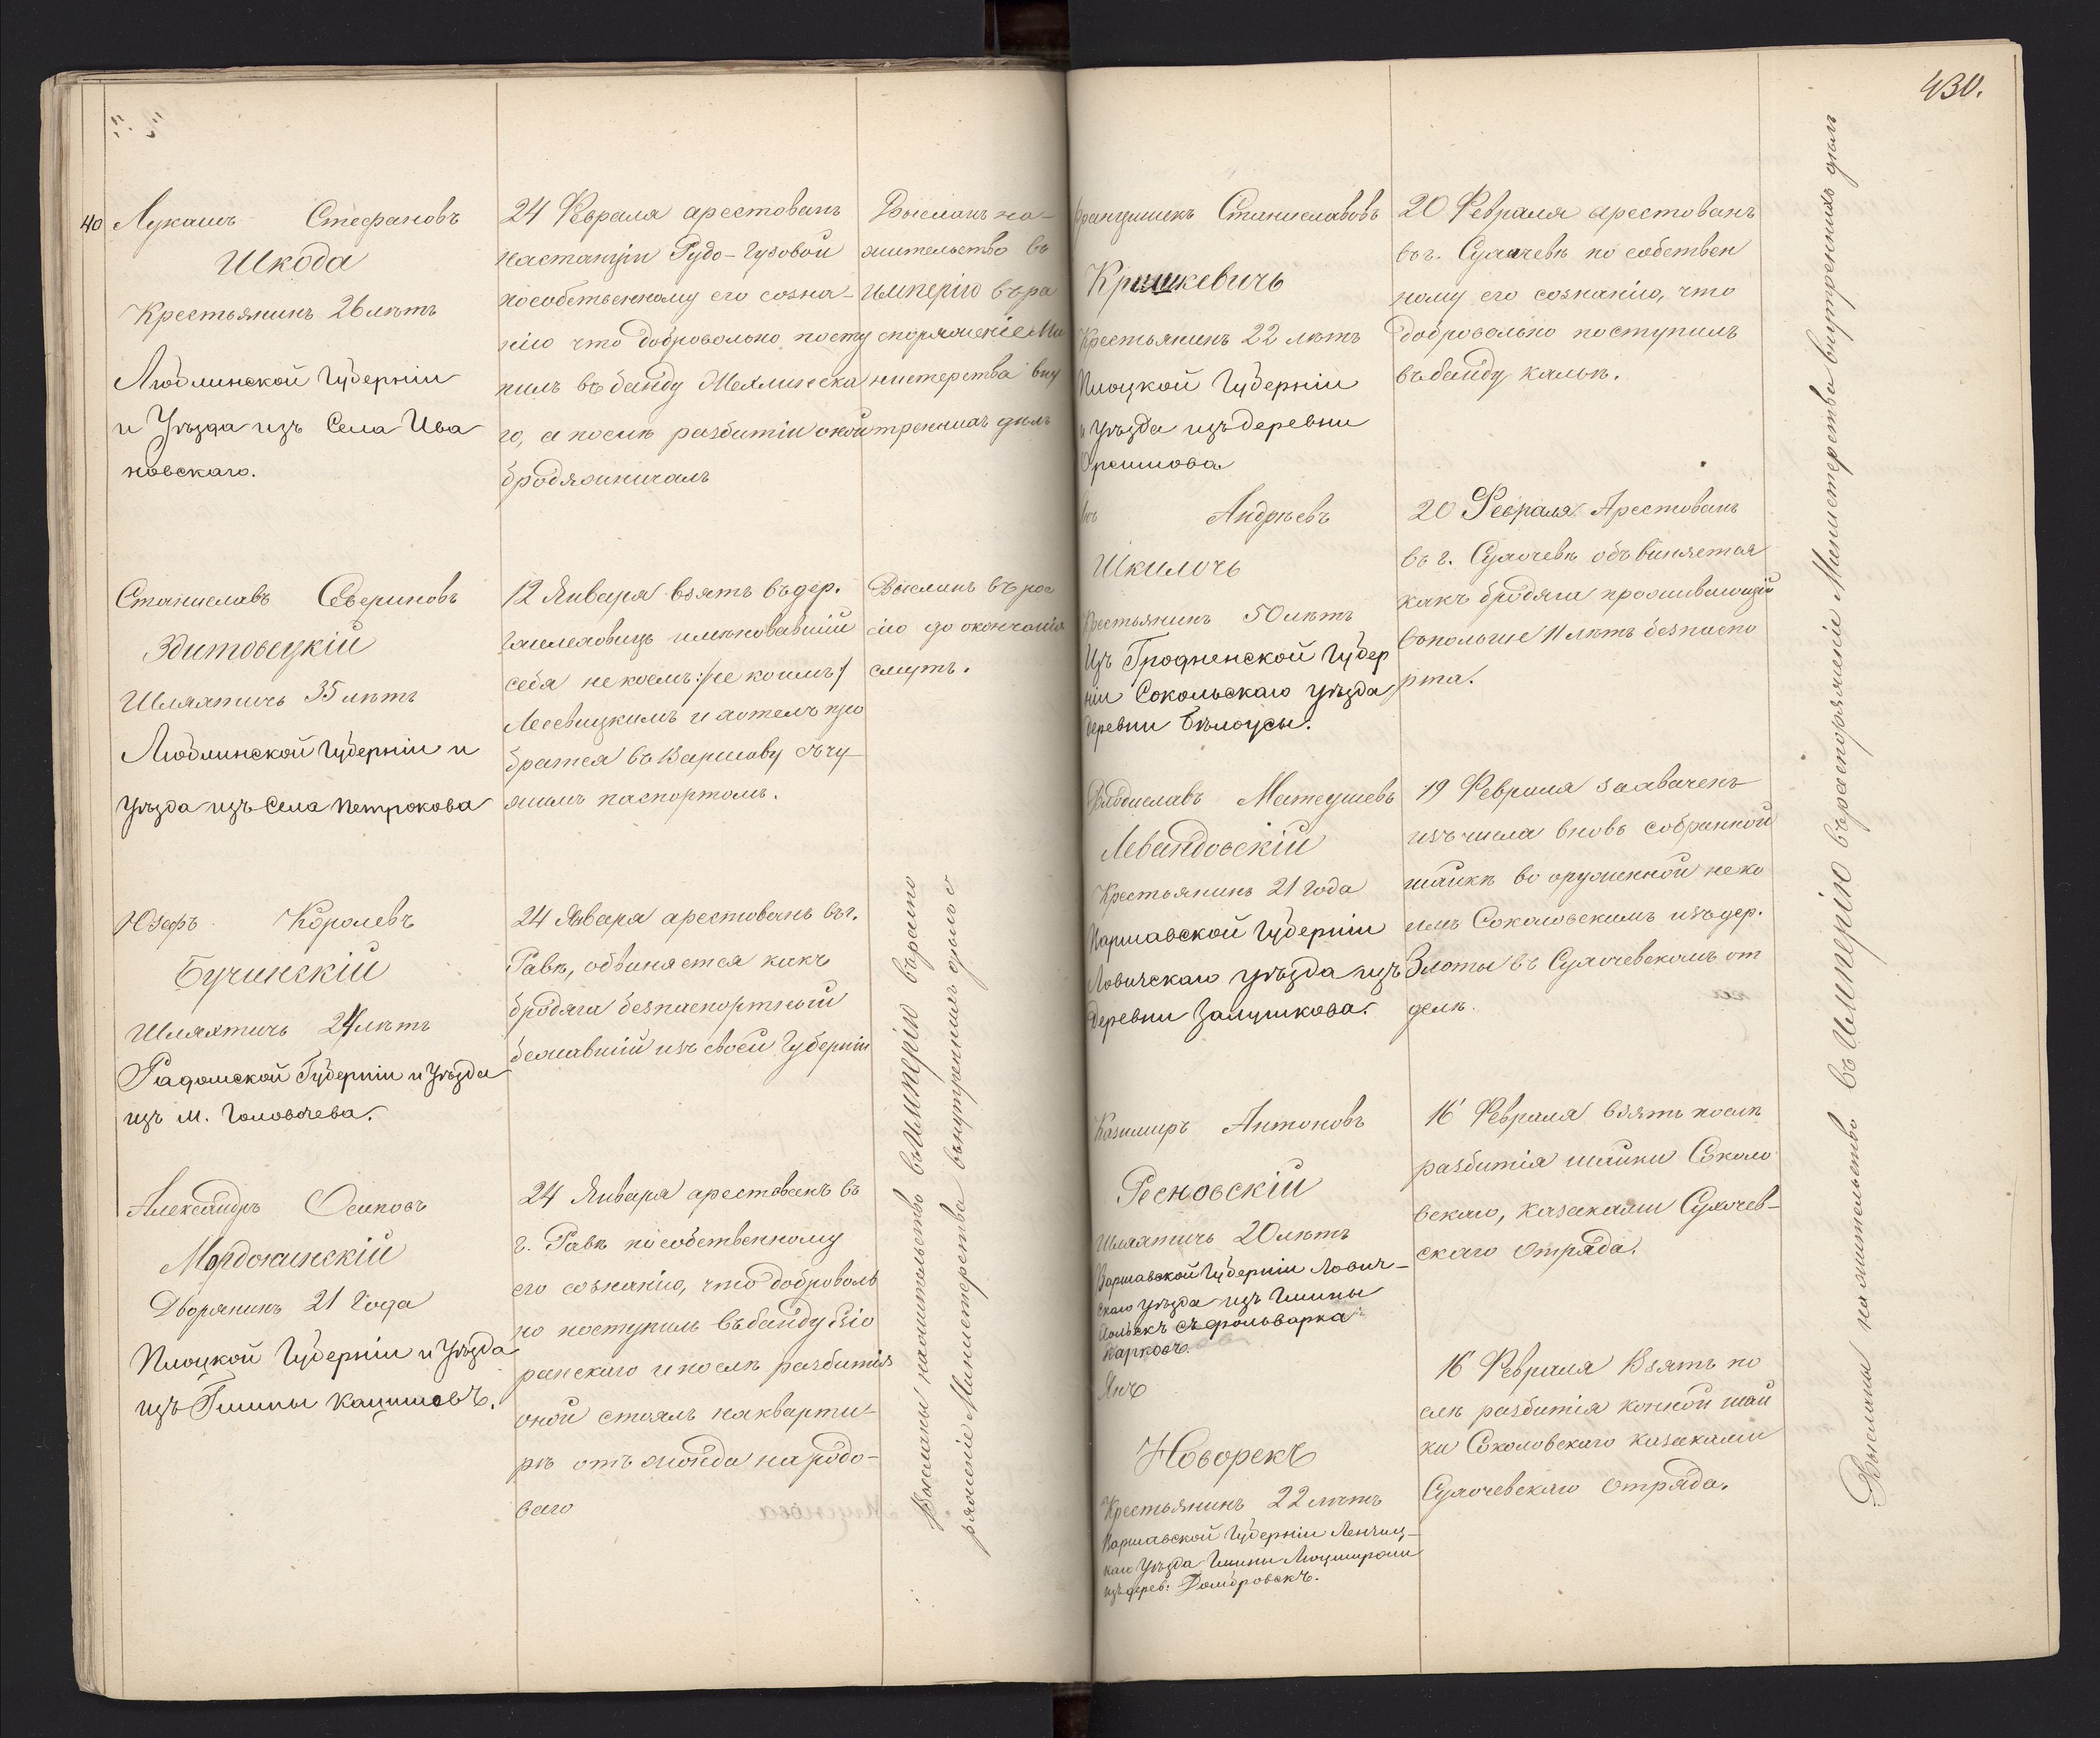 40 Лукашъ Стефановъ
Шкода
Крестьянинъ 26 лѣтъ
Люблинской Губерніи
и Уѣзда изъ Села Ива
новскаго.
24 Февраля арестованъ
настанціи Рудо-Гузовой
пособственному его созна-
нію что добровольно посту
пилъ въ банду Мехлинска
го, а послѣ разбитіи оной
бродяжничалъ
Высланъ на-
жительство въ
Имперію въ ра
споряженіе Ми
нистерства вну
треннихъ дѣлъ
Станиславъ Севериновъ
Здитовецкій
Шляхтичь 35 лѣтъ
Люблинской Губерніи и
Уѣзда изъ Села Петрокова
12 Января взятъ въ дер.
именовавшій
себя не коемъ :/не коимъ/
Лесевицкимъ и хотелъ про
братся въ Варшаву съ чу
жимъ паспортомъ.
Высланъ въ рос
сію до окончанія
смутъ.
Юзефъ Королевъ
Бучинскій
Шляхтичь 24 лѣтъ
Радомской Губерніи и Уѣзда
изъ М. Головачева.
24 Января арестованъ въ г.
Равѣ, обвиняется какъ
бродяга безпаспортный
бежавшій изъ своей Губерніи
Александръ Осиповъ
Мордохинскій
Дворянинъ 21 Года
Плоцкой Губерніи и Уѣзда
изъ Гмины
24 Января арестованъ въ
г. Равѣ по собственному
его сознанію, что доброволь
но поступилъ въ банду
и послѣ разбитія
оной стоялъ накварти-
рѣ отъ жонда народо-
ваго
Высланы нажительство въ Имперію въ распо
ряженіе Министерства внутреннихъ дѣлъ
430.
Францишекъ Станиславовъ
Кришкевичь
Крестьянинъ 22 лѣтъ
Плоцкой Губерніи
и Уѣзда изъ деревни
Орешова
20 Февраля арестованъ
въ г. Сухачевѣ по собствен
ному его сознанію, что
добровольно поступилъ
въ банду Кальк.
Андрѣевъ
Шкилочь
Крестьянинъ 50 лѣтъ
Изъ Гродненской Губер
ніи Сокольскаго уѣзда
деревни Бѣлоусы.
20 Февраля Арестованъ
въ г. Сухочевѣ объвиняется
какъ бродяга проживающій
вопольше 11 лѣтъ безпаспо
рта.
Владиславъ Матеушевъ
Левандовскій
Крестьянинъ 21 года
Варшавской Губерніи
Ловичскаго уѣзда изъ
деревни Залушкова.
19 Февраля захваченъ
изъ числа вновь собранной
шайкѣ вооруженной неко
имъ Соколовскимъ изъ дер.
Злоты въ Сухочевскомъ от
делѣ.
Казимиръ Антоновъ
Ресновскій
Шляхтичь 20 лѣтъ
Варшавской Губерніи Лович-
скаго уѣзда изъ Гмины
съ фольварка
16 Февраля взятъ послѣ
разбитія шайки Соколо
вскаго, казаками Сухочев-
скаго отряда.
Янъ
Новорекъ
Крестьянинъ 22 лѣтъ
Варшавской Губерніи Ленчиц-
каго Уѣзда Гмины
изъ дерев: Домбровскъ.
16 Февраля Взятъ по
слѣ разбитія конной шай
ки Соколовскаго казаками
Сухочевскаго отряда.
Высланы на жительство въ Имперію въ распоряженіе Министерства внутреннихъ дѣлъ